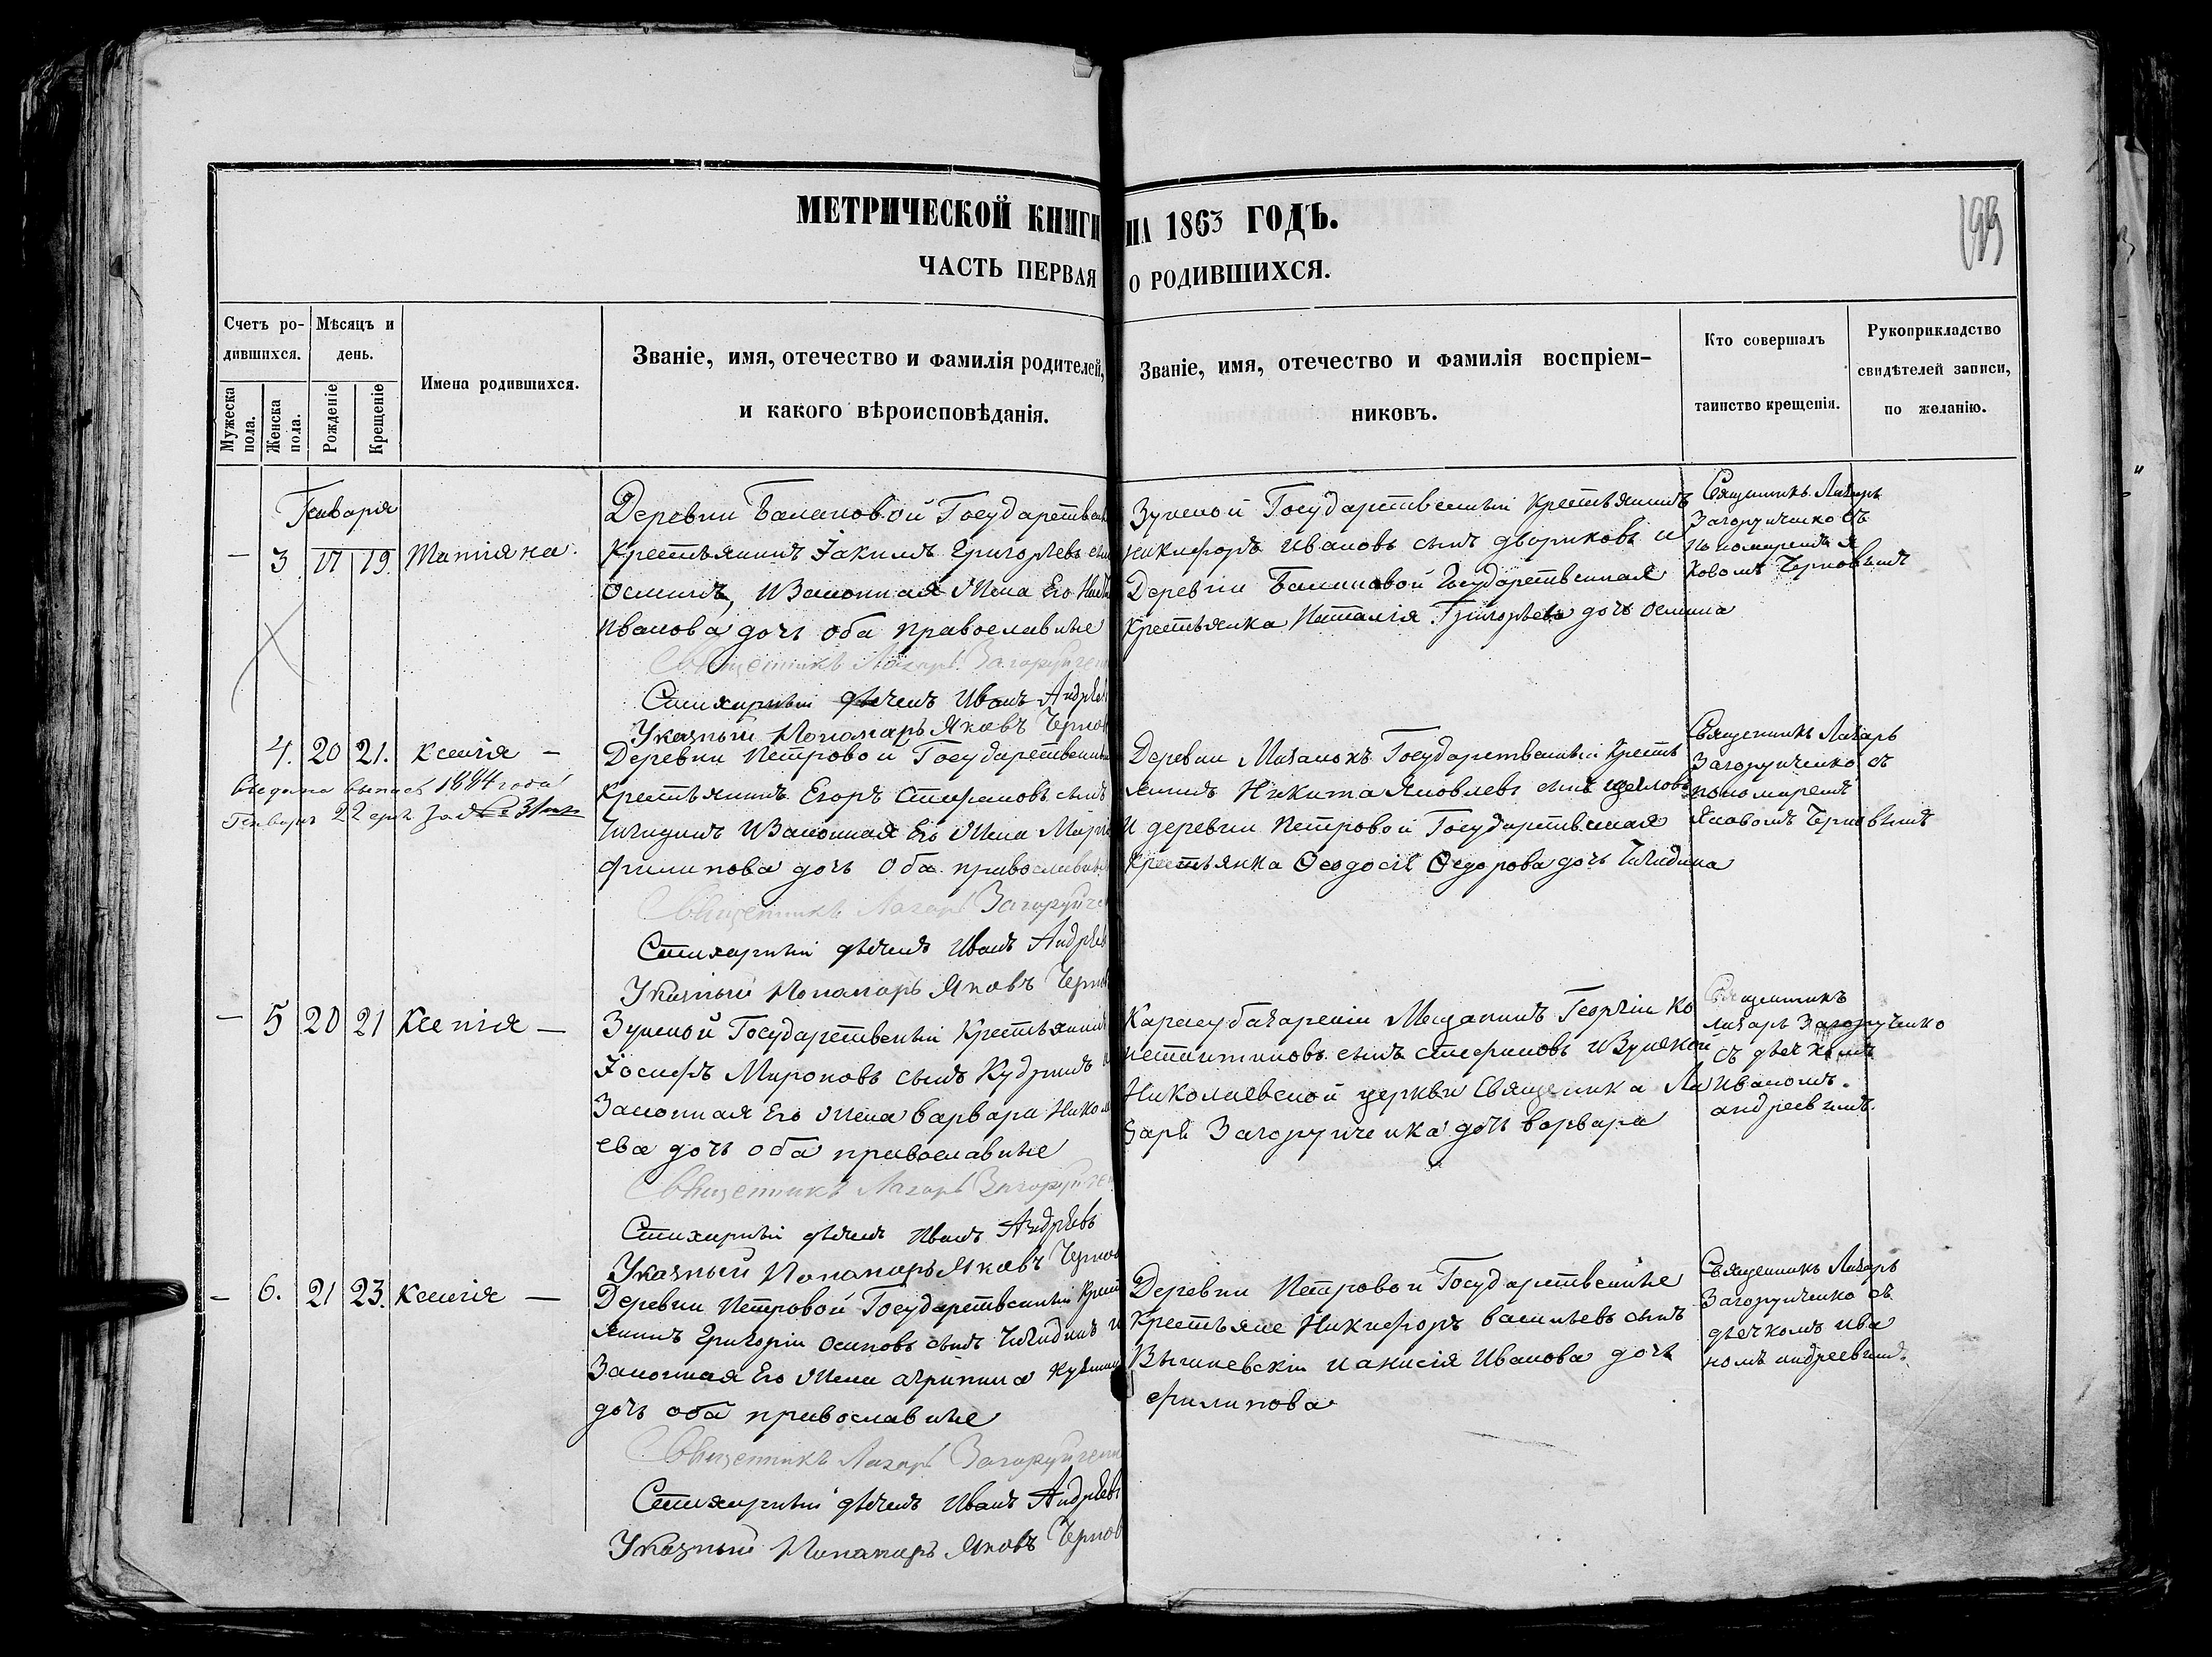 МЕТРИЧЕСКОЙ КНИГИ НА 1863 ГОДЪ.
199
ЧАСТЬ ПЕРВАЯ О РОДИВШИХСЯ.
Счетъ ро-
дившихся.
Мужеска пола.
Женска пола.
Мѣсяцъ и
день.
Рожденіе
Крещеніе
Имена родившихся.
Званіе, имя, отечество и фамилія родителей,
и какого вѣроисповѣданія.
Званіе, имя, отечество и фамилія воспріем-
никовъ.
Кто совершалъ
таинство крещенія.
Рукоприкладство
свидѣтелей записи,
по желанію.
Генваря
— 3 17 19. Татіяна.
Деревни Балановой Государствен
Крестьянинъ Іакимъ Григорьевъ сын
Осминъ, и Законная Жена Его
Иванова дочь оба православные
Священникъ Лазарь Загоруйчен
Стихарный дьячекъ Иванъ Андрѣев
Указный Пономарь Яковъ Чернов
Зуйской Государственный Крестьянинъ
Никифоръ Ивановъ сынъ двориковъ и
Деревни Балановой Государственная
Крестьянка Наталія Григорьева дочь Осмина
Священникъ Лазарь
Загоруйченко съ
пономаремъ Я
ковомъ Черновымъ
4. 20 21. Ксенія —
1884 года
Генваря 22
Деревни Петровой Государственный
Крестьянинъ Егоръ Стефановъ сынъ
Чичидинъ и Законная Его Жена
Филипова дочь Оба православные
Священникъ Лазарь Загоруйче
Стихарный дьячекъ Иванъ Андрѣев
Указный Пономарь Яковъ Чернов
Деревни Мазанокъ Государственный Кресть
янинъ Никита Яковлевъ сынъ
И деревни Петровой Государственная
Крестьянка Ѳеодосіе Ѳедорова дочь Чичидина
Священникъ Лазарь
Загоруйченко съ
пономаремъ
Яковомъ Черновымъ
— 5 20 21 Ксенія —
Зуйской Государственный Крестьянинъ
Іосифъ Мироновъ сынъ Кудринъ и
Законная Его Жена варвара Никола
ева дочь оба православные
Священникъ Лазарь Загоруйчен
Стихарный дьячекъ Иванъ Андрѣевъ
Указный Пономарь Яковъ Чернов
Карасубазарскій Мещанинъ Георгій Ко
нстантиновъ сынъ стефановъ и Зуйской
Николаевской церкви Священника Ла
заря Загоруйченка дочь варвара
Священникъ
Лазарь Загоруйченко
съ дьячкомъ
Иваномъ
андреевымъ.
— 6. 21 23. Ксенія —
Деревни Петровой Государственный Крест
янинъ Григорій Осиповъ сынъ Чичидинъ и
Законная Его Жена агрипина
дочь оба православные
Священникъ Лазарь Загоруйчен
Стихарный дьячекъ Иванъ Андрѣевъ
Указный Пономарь Яковъ Чернов
Деревни Петровой Государственные
Крестьяне Никифоръ васильевъ сынъ
Вычиневскій и анисія Иванова дочь
филипова
Священникъ Лазарь
Загоруйченко съ
дьячкомъ ива
номъ андреевымъ.